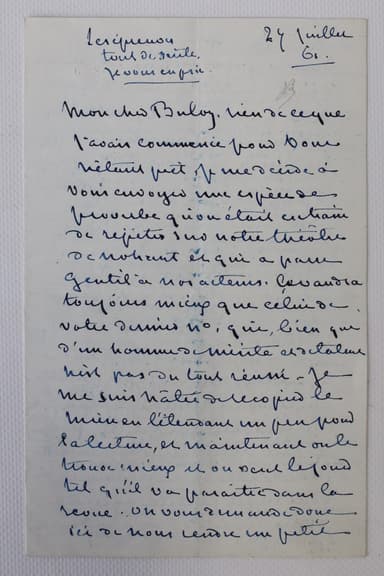 les épreuves
tout de suite,
je vous en prie.
27 juillet
61.
Mon cher Buloz, rien de ce que
j'avais commencé pour vous
n'étant prêt, je me décide à
vous envoyer une espèce de
proverbe qu'on était en train
de répéter sur notre théâtre
de nohant et qui a paru
gentil à nos acteurs. Ça vaudra
toujours mieux que celui de
votre dernier no, qui, bien que
d'un homme de mérite et de talent
n'est pas du tout réussi. Je
me suis hâtée de recopier le
mien en l'étendant un peu pour
la lecture, et maintenant on le
trouve mieux et on veut le jouer
tel qu'il va paraître dans la
revue. On vous demande donc
ici de nous rendre un petit